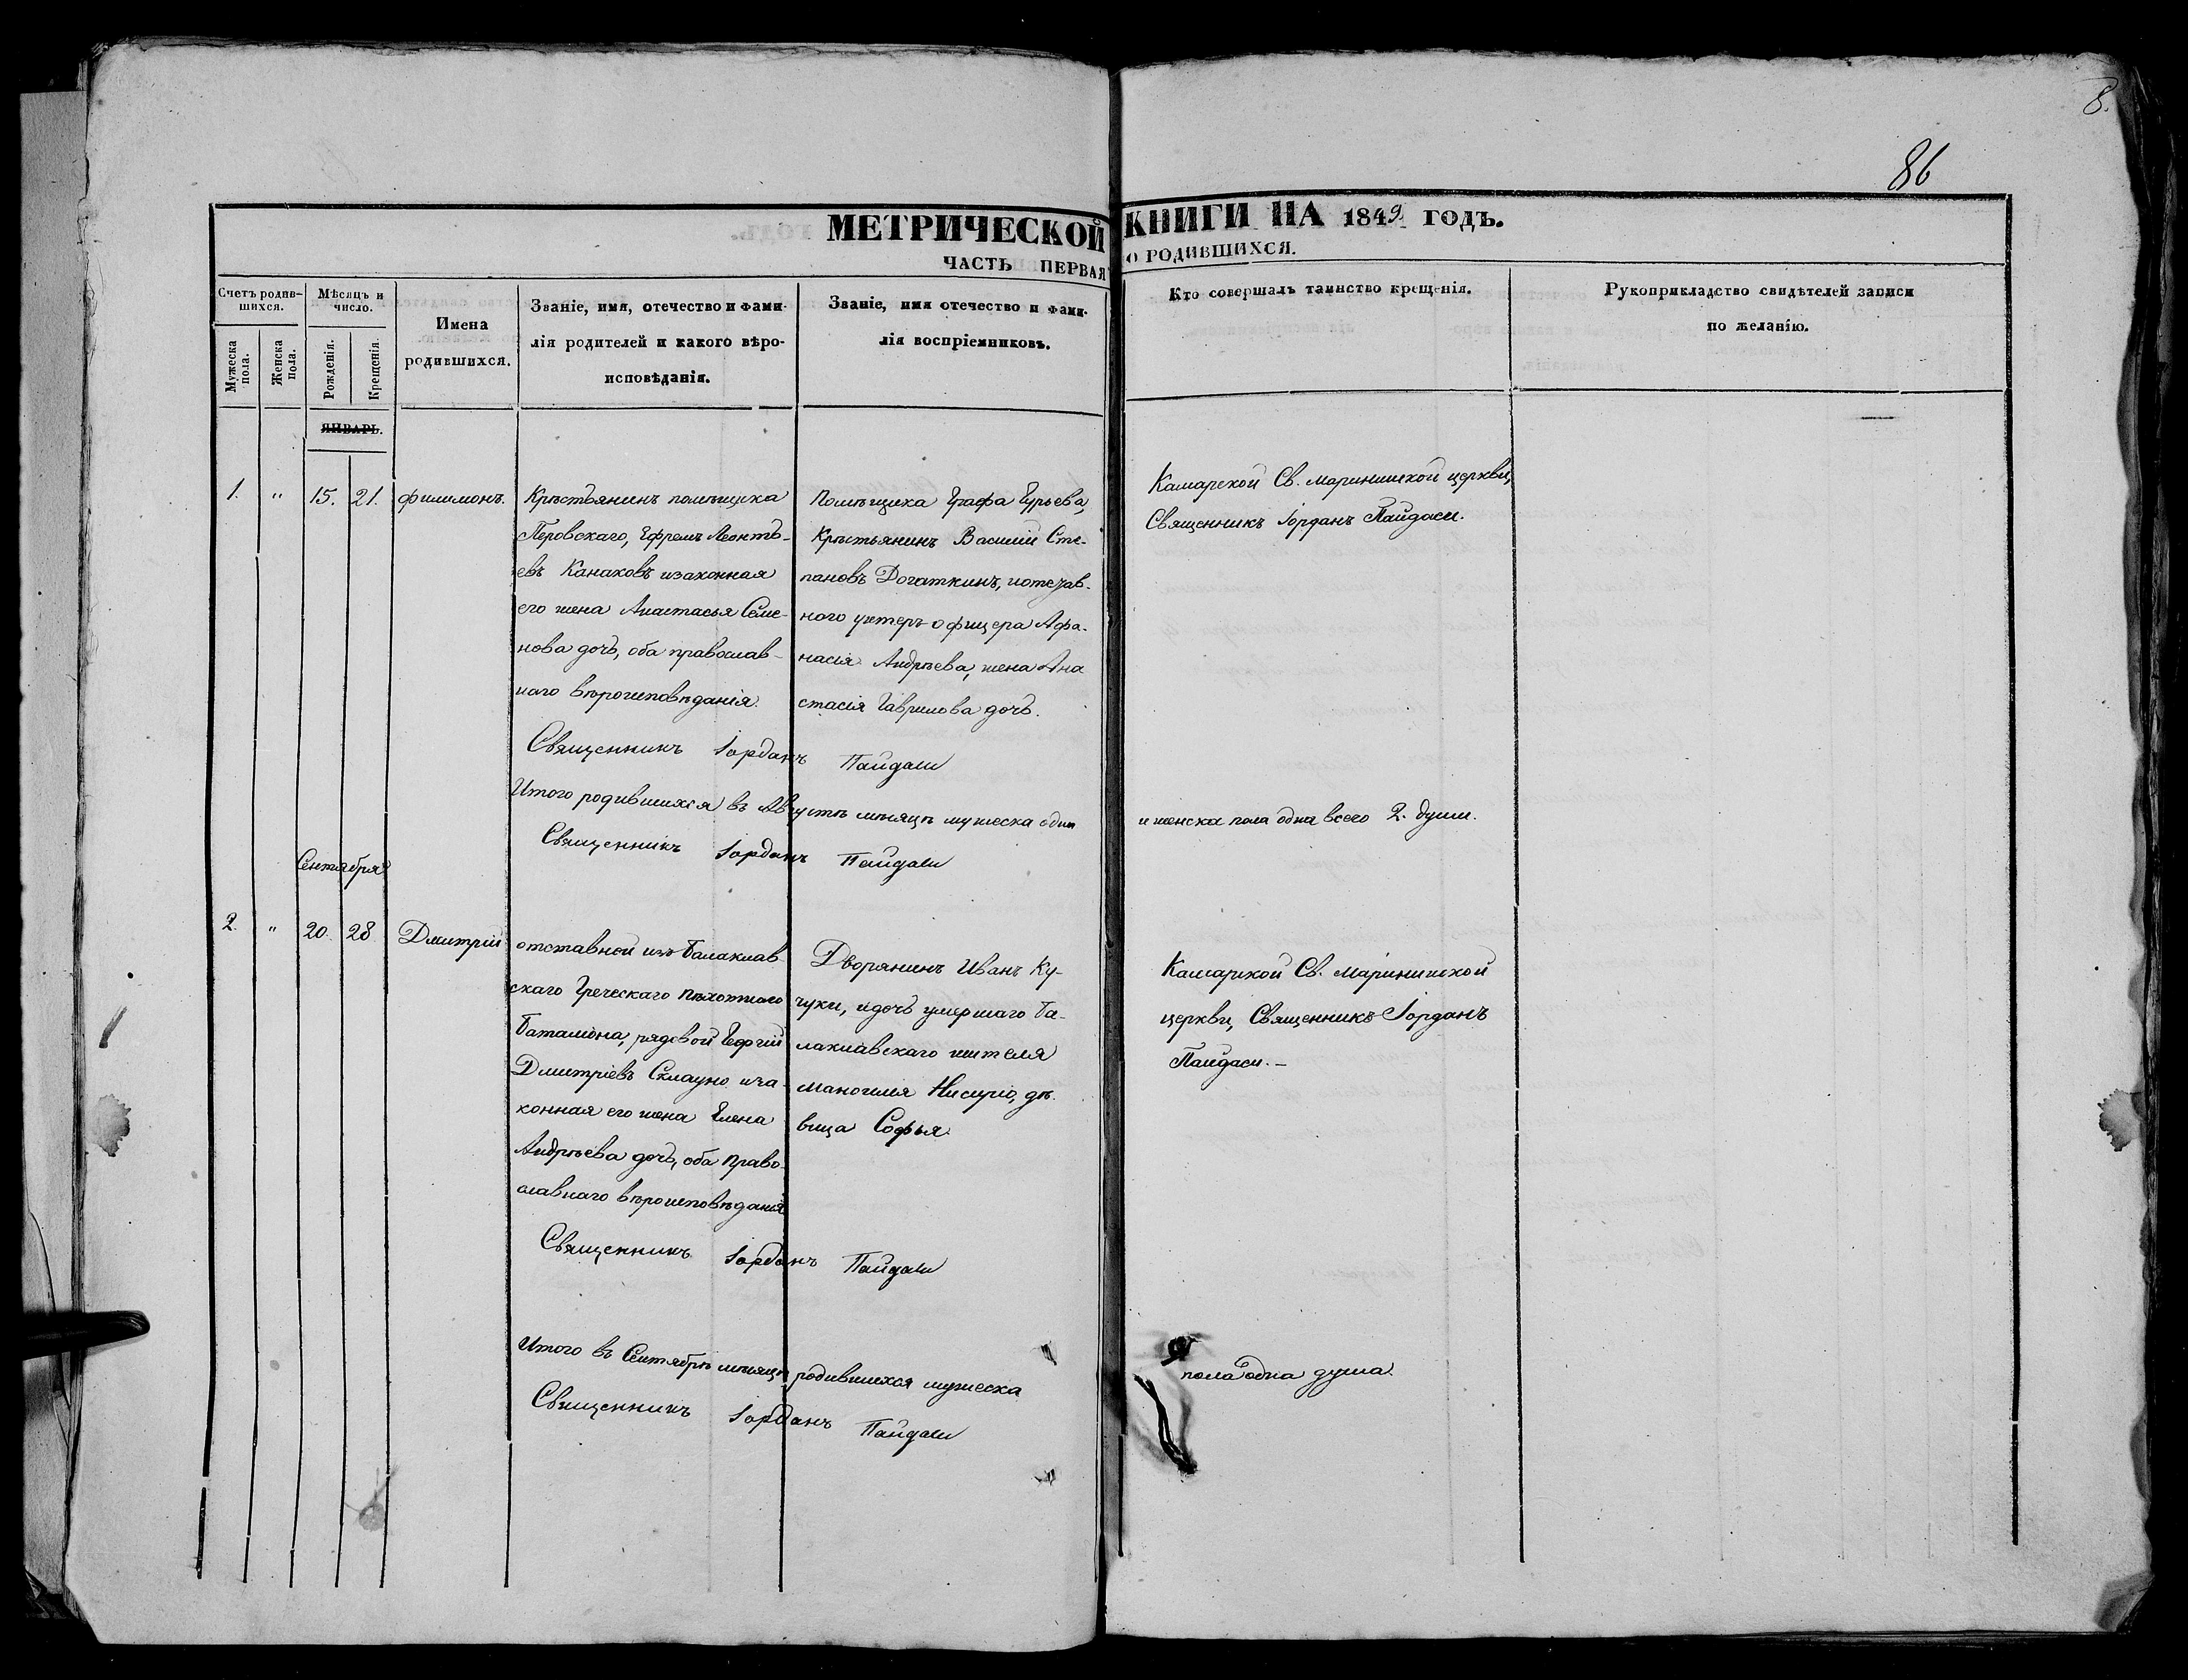 8.
86
МЕТРИЧЕСКОЙ КНИГИ НА 1849 ГОДЪ.
ЧАСТЬ ПЕРВАЯ О РОДИВШИХСЯ.
Счетъ родив-
шихся.
Мужеска
пола.
Женска
пола.
Мѣсяцъ и
число.
Рожденія.
Крещенія.
Имена
родившихся.
Званіе, имя, отечество и фами-
лія родителей и какого вѣро-
исповѣданія.
Званіе, имя отечество и фами-
лія воспріемниковъ.
Кто совершалъ таинство крещенія.
Рукоприкладство свидѣтелей записи
по желанію.
ЯНВАРЬ.
1. " 15. 21. Филимонъ.
Крѣстьянинъ помѣщика
Перовскаго, Ефремъ Леонть-
евъ Канаковъ изаконная
его жена Анастасья Семе-
нова дочь, оба православ-
наго вѣроисповѣданія.
Помѣщика Графа Гурьева,
Крѣстьянинъ Василій Сте-
пановъ Догаткинъ, иотстав-
ного унтеръ-офицера Афа-
насія Андрѣева, жена Ана
стасія Гаврилова дочь.
Камарской Св. Марининской церкви,
Священникъ Іорданъ Пайдаси.
Священникъ Іорданъ Пайдаси
Итого родившихся въ Августѣ мѣсяцѣ мужеска одна и женска пола одна всего 2. души.
Священникъ Іорданъ Пайдаси
Сентября
2. " 20. 28 Дмитрій
отставной изъ Балаклав
скаго Греческаго пѣхотнаго
Баталіона, рядовой Георгій
Дмитріевъ Склауно иза-
конная его жена Елена
Андрѣева дочь, оба право-
славнаго вѣроисповѣданія
Дворянинъ Иванъ Ку-
чуки, идочь умершаго Ба-
лаклавскаго жителя
Маноилія дѣ-
вица Софья.
Камарской Св. Марининской
церкви, Священникъ Іорданъ
Пайдаси. –
Священникъ Іорданъ Пайдаси
Итого въ Сентябрѣ мѣсяцѣ родившихся мужеска пола одна душа.
Священникъ Іорданъ Пайдаси